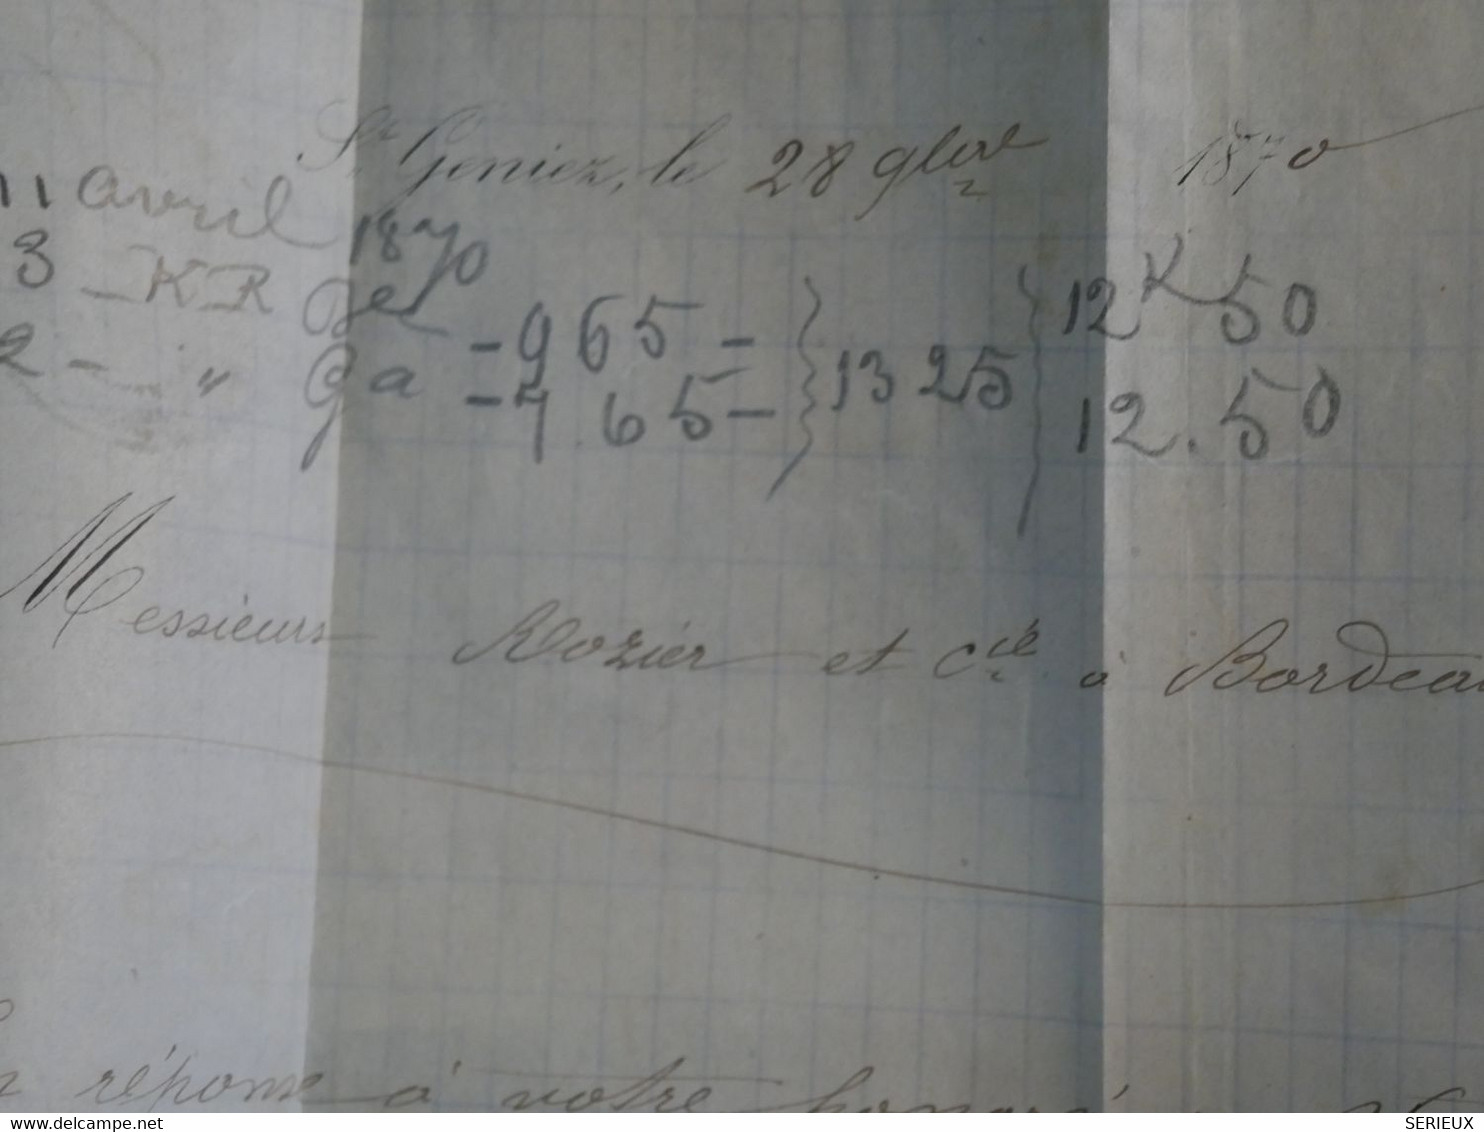 St Geniez, le 28 9bre 1870
11 avril 1870
3 - KR Ge - 965 - } 1325 } 12K 50
2 - " Ga - 765 - 12.50
Messieurs Rozier et Cie à Bordeau
réponse à votre honoré
delcampe.net
SERIEUX